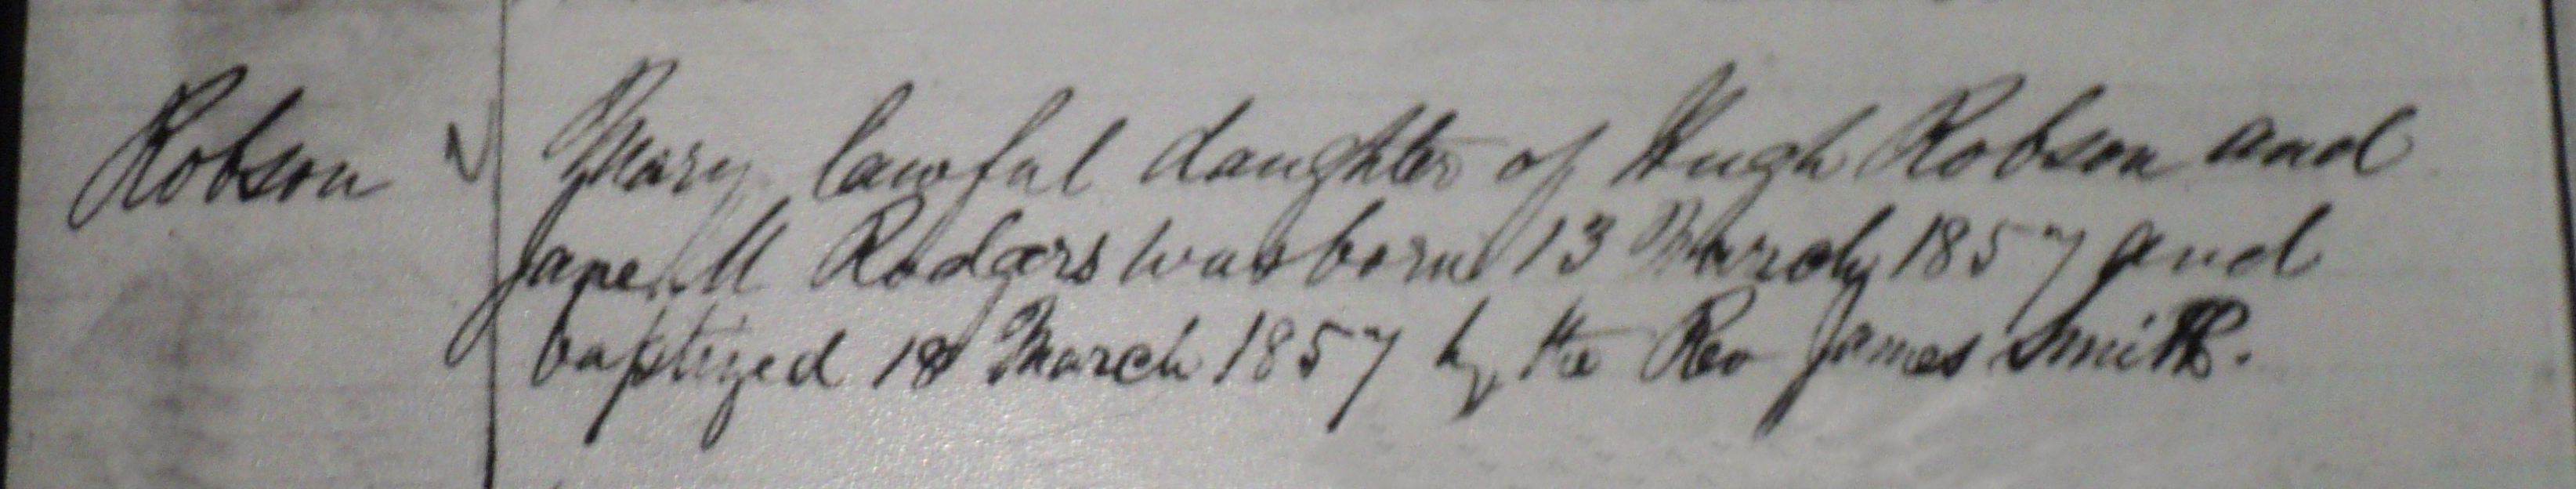 Robson
Mary lawful daughter of Hugh Robson and
Jane M Rodgers was born 13 March 1857 and
baptized 18 March 1857 by the Rev James Smith.